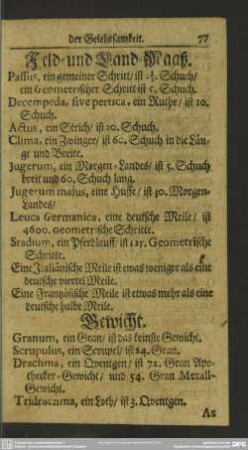 der Gelehrsamkeit. 77
Feld- und Land-Maaß.
Passus, ein gemeiner Schritt/ ist 2½. Schuch/
ein Geometrischer Schritt ist 5. Schuch.
Decempeda, sive pertica, ein Ruthe/ ist 10.
Schuch.
Actus, ein Strich/ ist 20. Schuch.
Clima, ein Zwinger/ ist 60. Schuch in die Län-
ge und Breite.
Jugerum, ein Morgen-Landes/ ist 5. Schuch
breit und 60. Schuch lang.
Jugerum majus, eine Huffe/ ist 30. Morgen-
Landes/
Leuca Germanica, eine deutsche Meile/ ist
4600. Geometrische Schritte.
Stadium, ein Pferdlauff/ ist 125. Geometrische
Schritte.
Eine Italiänische Meile ist etwas weniger als eine
deutsche viertel Meile.
Eine Frantzösische Meile ist etwas mehr als eine
deutsche halbe Meile.
Gewicht.
Granum, ein Gran/ ist das keinste Gewicht.
Scrupulus, ein Scrupel/ ist 24. Gran.
Drachma, ein Qventgen/ ist 72. Gran Apo-
thecker-Gewicht/ und 54. Gran Metall-
Gewicht.
Tridrachma, ein Loth/ ist 3. Qventgen.
As